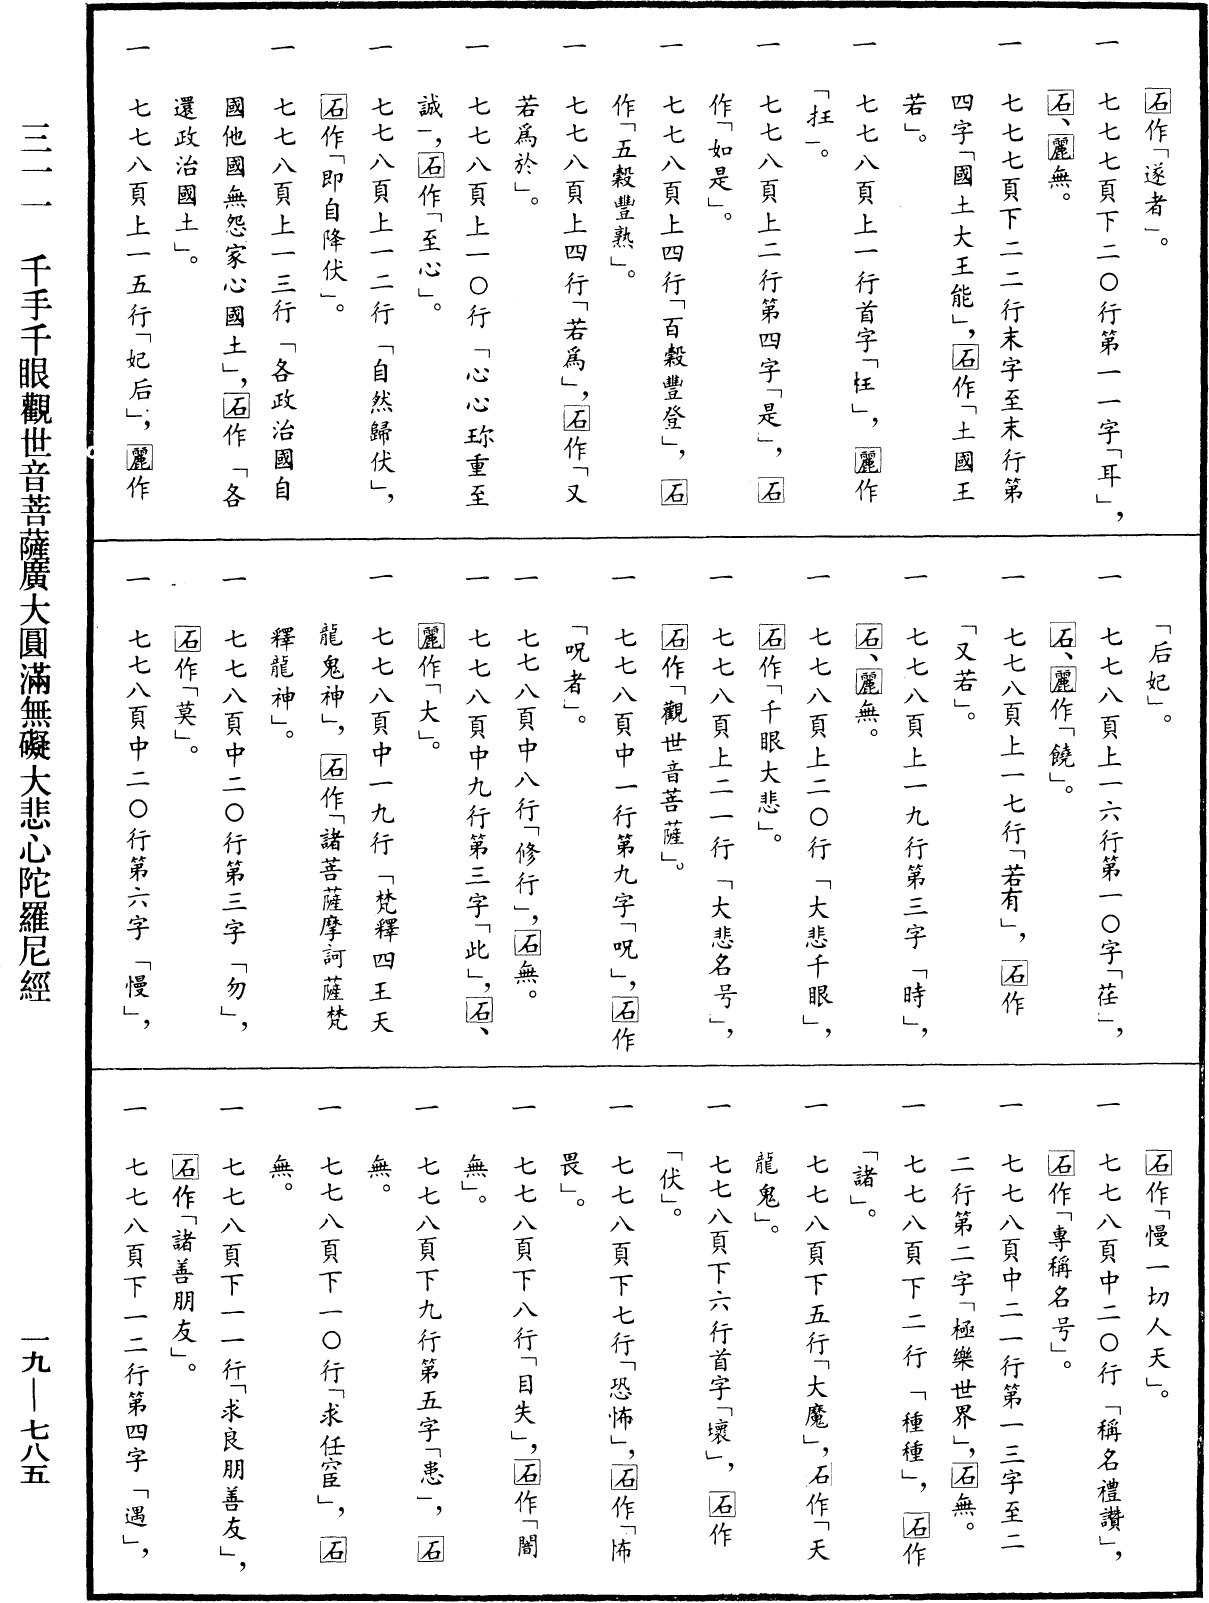 石作「遂者」。
一 七七七頁下二〇行第一一字「耳」，
石、麗無。
一 七七七頁下二二行末字至末行第
四字「國土大王能」，石作「土國王
若」。
一 七七八頁上一行首字「枉」，麗作
「抂」。
一 七七八頁上二行第四字「是」，石
作「如是」。
一 七七八頁上四行「百穀豐登」，石
作「五穀豐熟」。
一 七七八頁上四行「若爲」，石作「又
若爲於」。
一 七七八頁上一〇行「心心珎重至
誠」，石作「至心」。
一 七七八頁上一二行「自然歸伏」，
石作「即自降伏」。
一 七七八頁上一三行「各政治國自
國他國無怨家心國土」，石作「各
還政治國土」。
一 七七八頁上一五行「妃后」，麗作
「后妃」。
一 七七八頁上一六行第一〇字「荏」，
石、麗作「饒」。
一 七七八頁上一七行「若有」，石作
「又若」。
一 七七八頁上一九行第三字「時」，
石、麗無。
一 七七八頁上二〇行「大悲千眼」，
石作「千眼大悲」。
一 七七八頁上二一行「大悲名号」，
石作「觀世音菩薩」。
一 七七八頁中一行第九字「呪」，石作
「呪者」。
一 七七八頁中八行「修行」，石無。
一 七七八頁中九行第三字「此」，石、
麗作「大」。
一 七七八頁中一九行「梵釋四王天
龍鬼神」，石作「諸菩薩摩訶薩梵
釋龍神」。
一 七七八頁中二〇行第三字「勿」，
石作「莫」。
一 七七八頁中二〇行第六字「慢」，
石作「慢一切人天」。
一 七七八頁中二〇行「稱名禮讚」，
石作「專稱名号」。
一 七七八頁中二一行第一三字至二
二行第二字「極樂世界」，石無。
一 七七八頁下二行「種種」，石作
「諸」。
一 七七八頁下五行「大魔」，石作「天
龍鬼」。
一 七七八頁下六行首字「壞」，石作
「伏」。
一 七七八頁下七行「恐怖」，石作「怖
畏」。
一 七七八頁下八行「目失」，石作「闇
無」。
一 七七八頁下九行第五字「患」，石
無。
一 七七八頁下一〇行「求任宦」，石
無。
一 七七八頁下一一行「求良朋善友」，
石作「諸善朋友」。
一 七七八頁下一二行第四字「遇」，
三一一 千手千眼觀世音菩薩廣大圓滿無礙大悲心陀羅尼經
一九—七八五